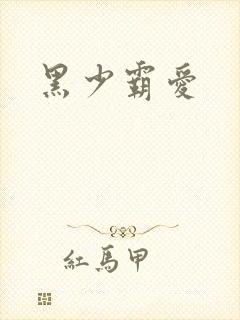 黑少霸愛
紅馬甲